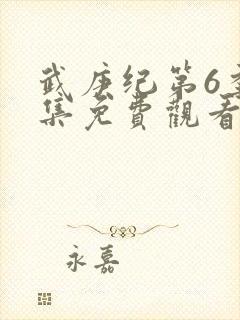 武庚纪第6季
集免費觀看
永嘉